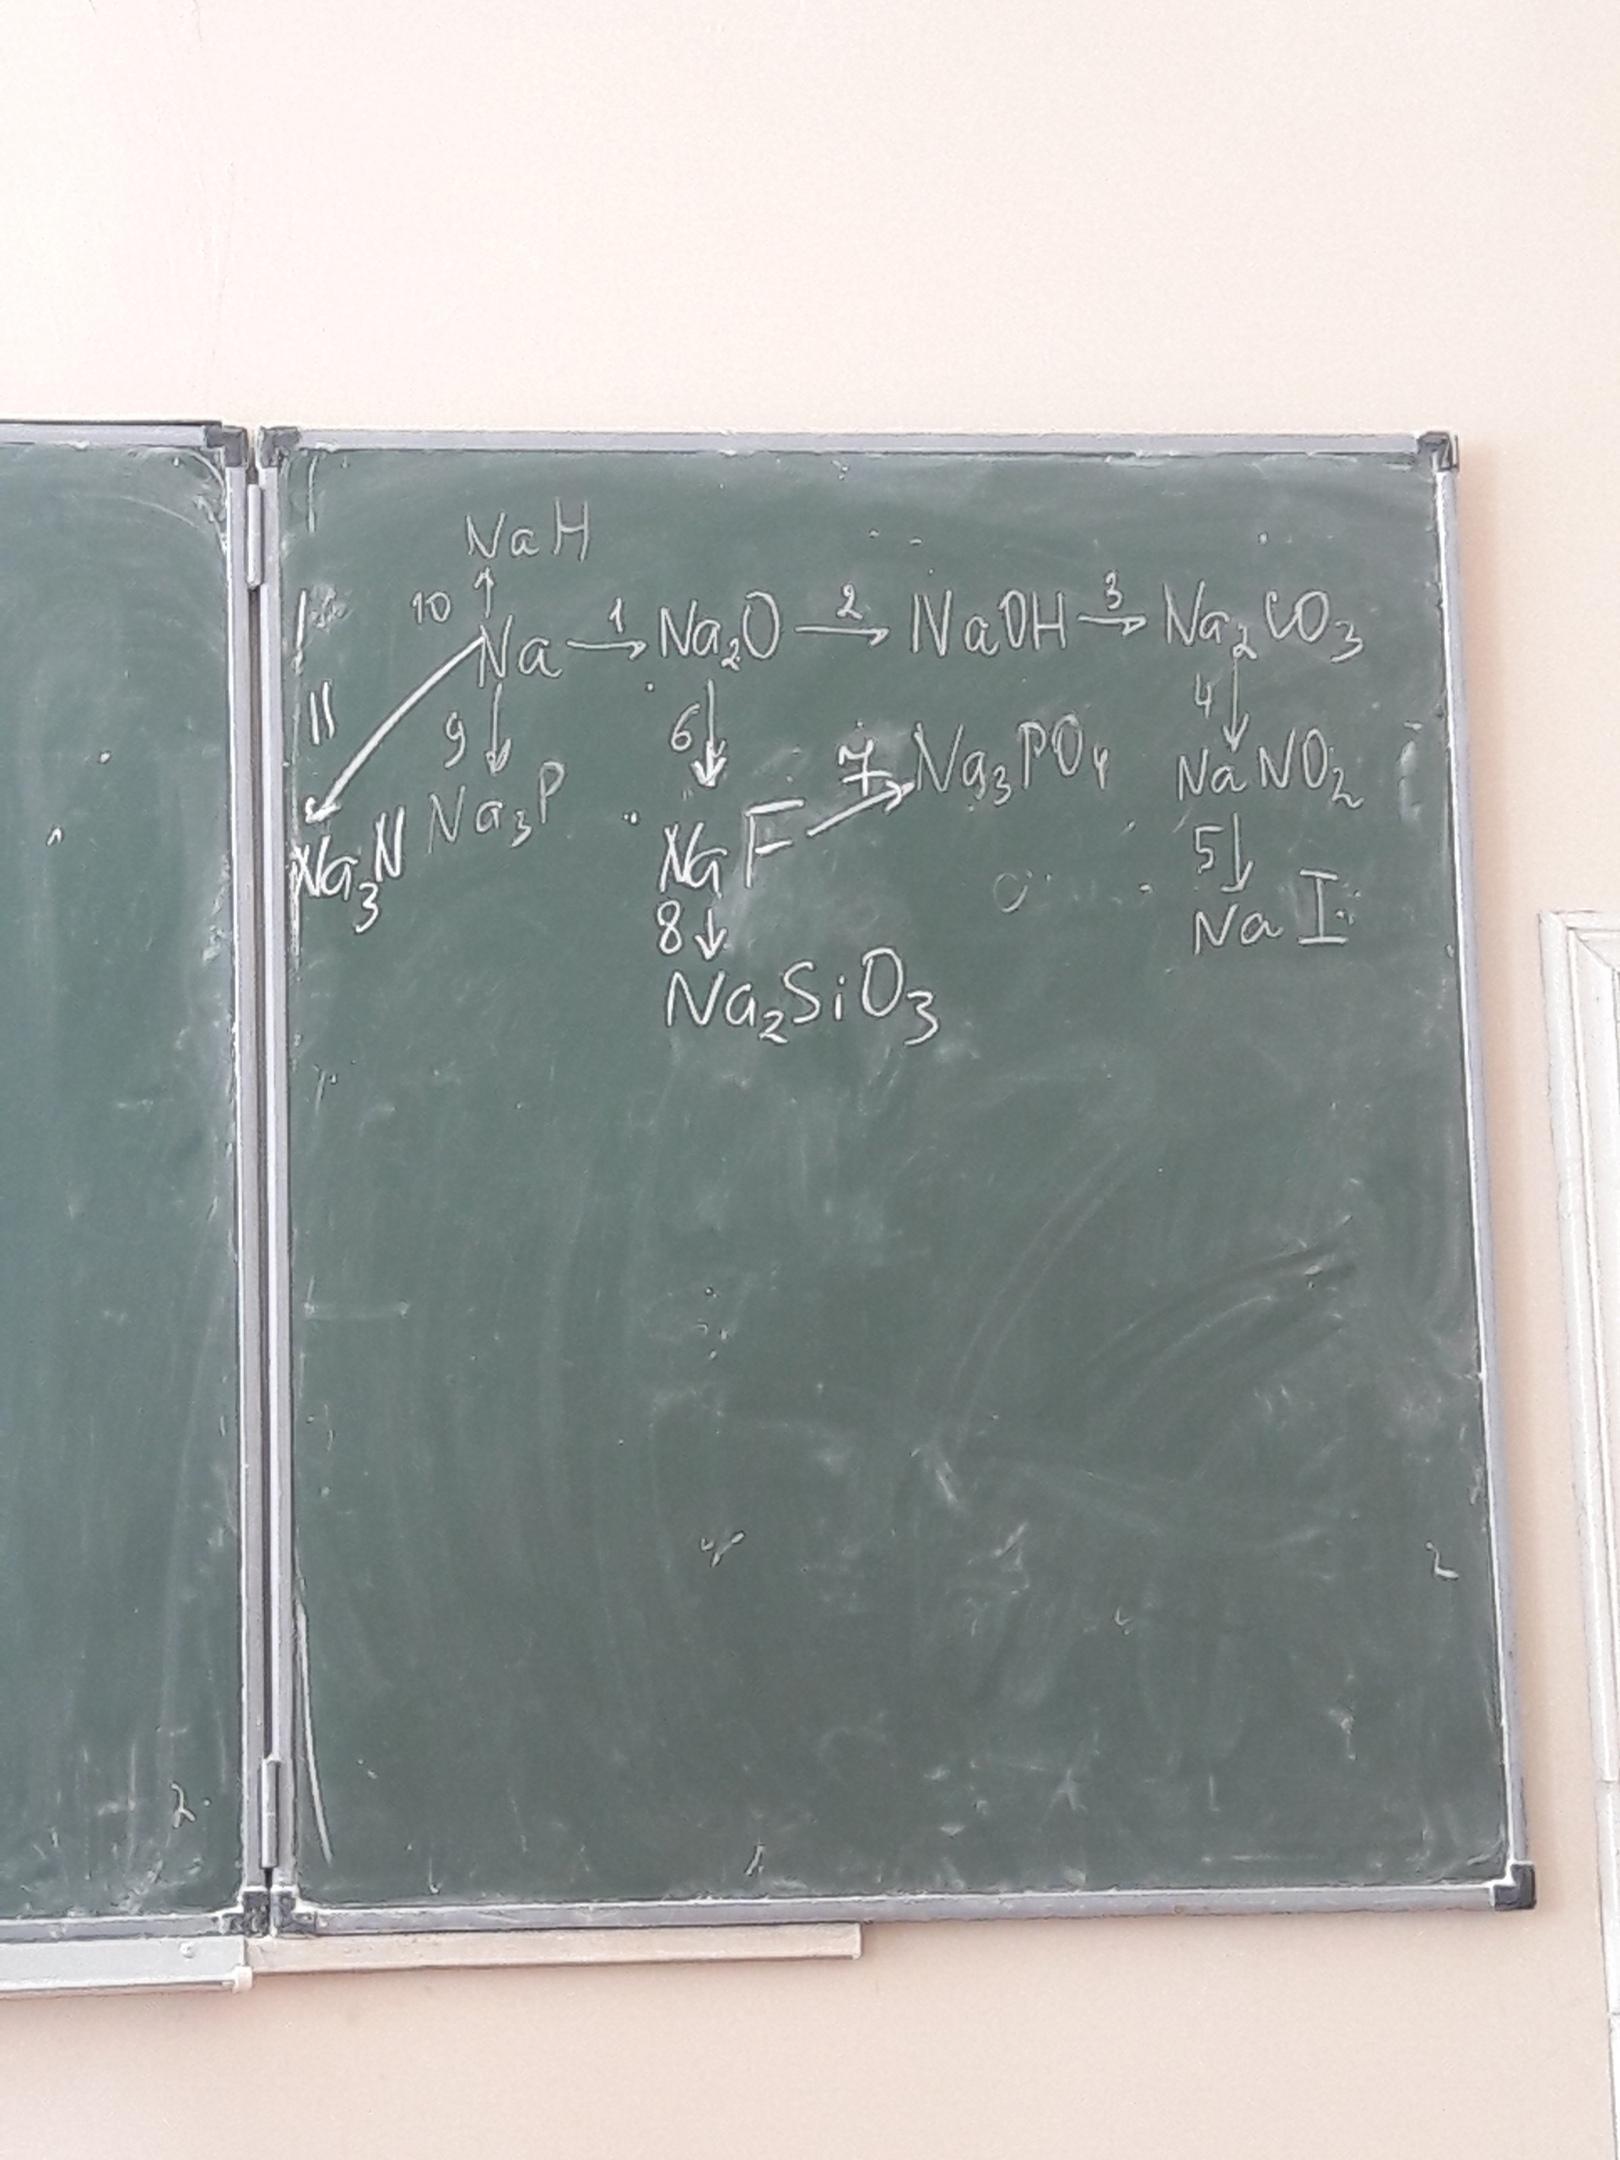 NaH
10 ↑
Na →1 Na₂O →2 NaOH →3 Na₂CO₃
11 9 ↓ 6 ↓ 4 ↓
Na₃N Na₃P NaF →7 Na₃PO₄ NaNO₂
8 ↓ 5 ↓
Na₂SiO₃ NaI
2
2